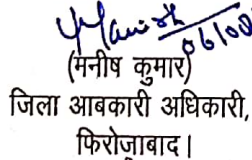 Manish
(मनीष कुमार)
जिला आबकारी अधिकारी,
फिरोजाबाद।